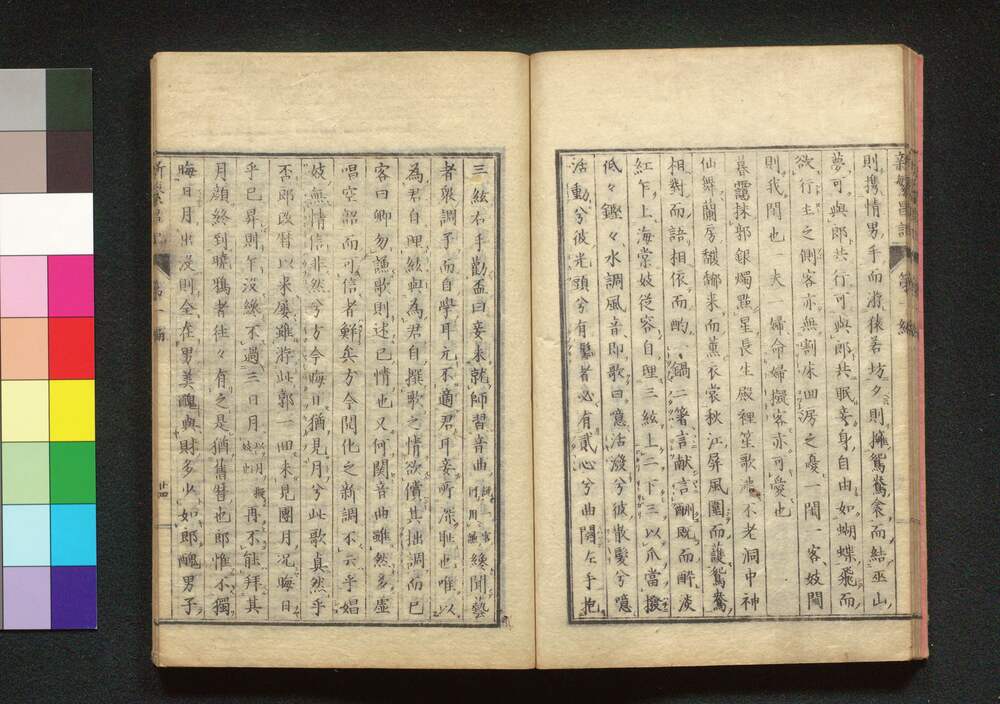 新繁昌記 第一編
則携情男手而游徠若坊夕則擁鴛鴦衾而結巫山
夢可與郎共行可與郎共眠妾身自由如蝴蝶飛而
欲行主之側客亦無割床回房之憂一閧一客妓閧
則我閧也一夫一婦命婦擬客亦可愛也
暮靄抹郭銀燭點星長生殿裡笙歌湧不老洞中神
仙舞蘭房馥郁来而薫衣裳秋江屏風圍而護鴛鴦
相對而語相依而酌一鍋二箸言献言酬既而酔淡
紅乍上海棠妓従容自理三絃上二下三以爪當撥
低々鏗々水調風音即歌曰意活潑兮彼散髪兮噫
活動兮彼光頭兮有髷者必有貳心兮曲闋左手抱
三絃右手勸盃曰妾未就師習音曲纔聞藝
者衆調予而自學耳元不適君耳妾所深耻也唯以
為君自理絃與為君自撰歌之情欲償其拙調而已
客曰卿勿謙歌則述已情也又何関音曲雖然多虚
唱空韶而可信者鮮矣方今開化之新調不云乎娼
妓無情信非然兮方今晦日猶見月兮此歌真然乎
否郎改暦以来屡雖游此郭一回未見團月况晦日
乎已昇則乍没纔不過三日月再不能拜其
月顔終到曉鴉者往々有之是猶舊暦也郎惟不獨
晦日月出没則全在男美醜與財多少如郎醜男子
新繁昌記 第一編 廿四